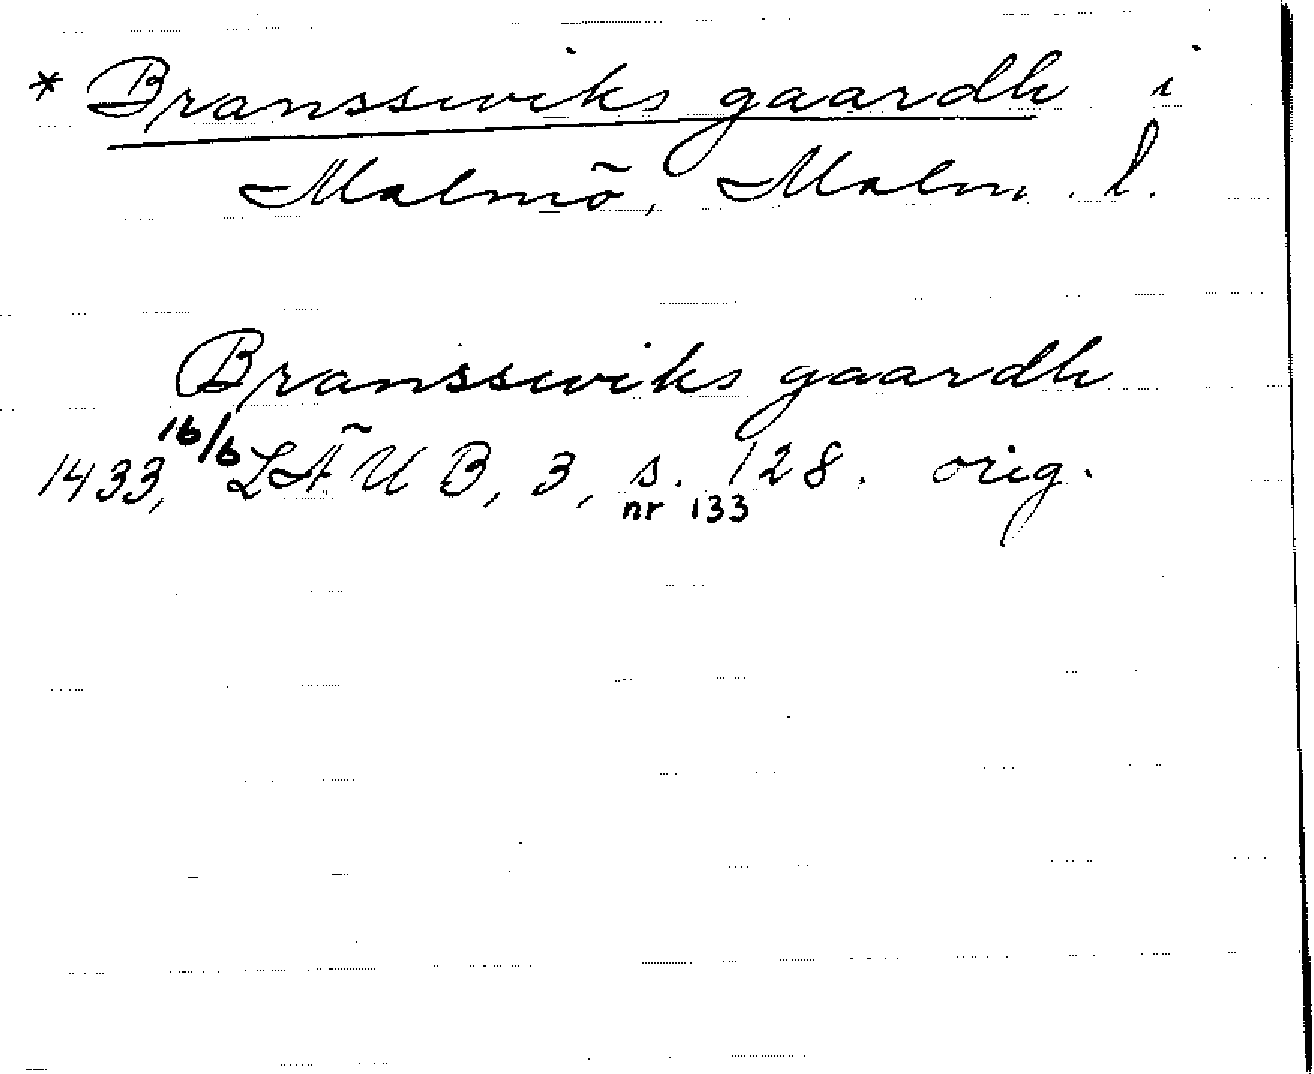 * Bransswiks gaardh i
Malmö, Malm. l.
Bransswiks gaardh
1433, 16/6 LÄUB, 3, s. 128. orig.
nr 133